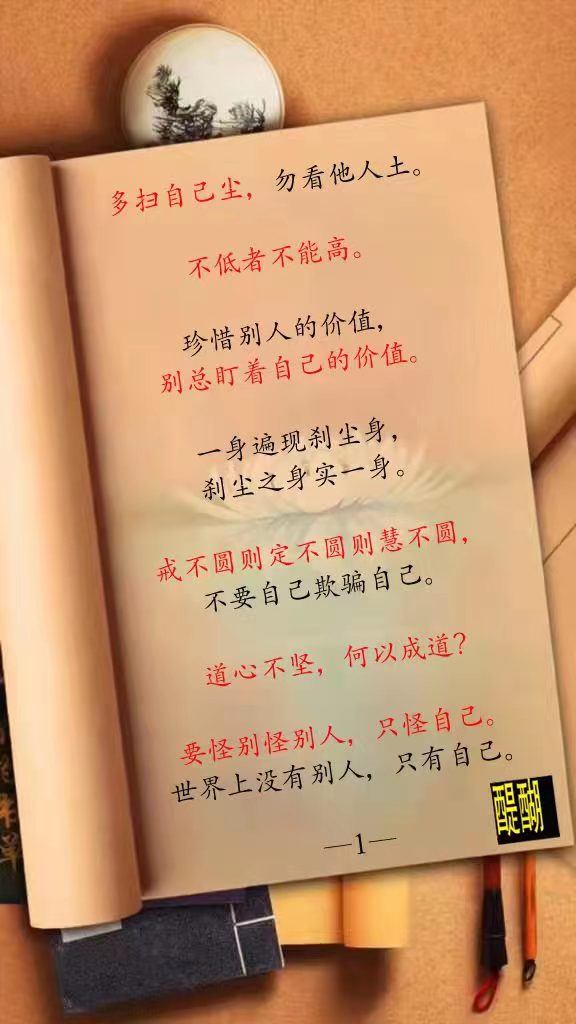 多扫自己尘，勿看他人土。
不低者不能高。
珍惜别人的价值，
别总盯着自己的价值。
一身遍现刹尘身，
刹尘之身实一身。
戒不圆则定不圆则慧不圆，
不要自己欺骗自己。
道心不坚，何以成道？
要怪别怪别人，只怪自己。
世界上没有别人，只有自己。
醍醐
—1—